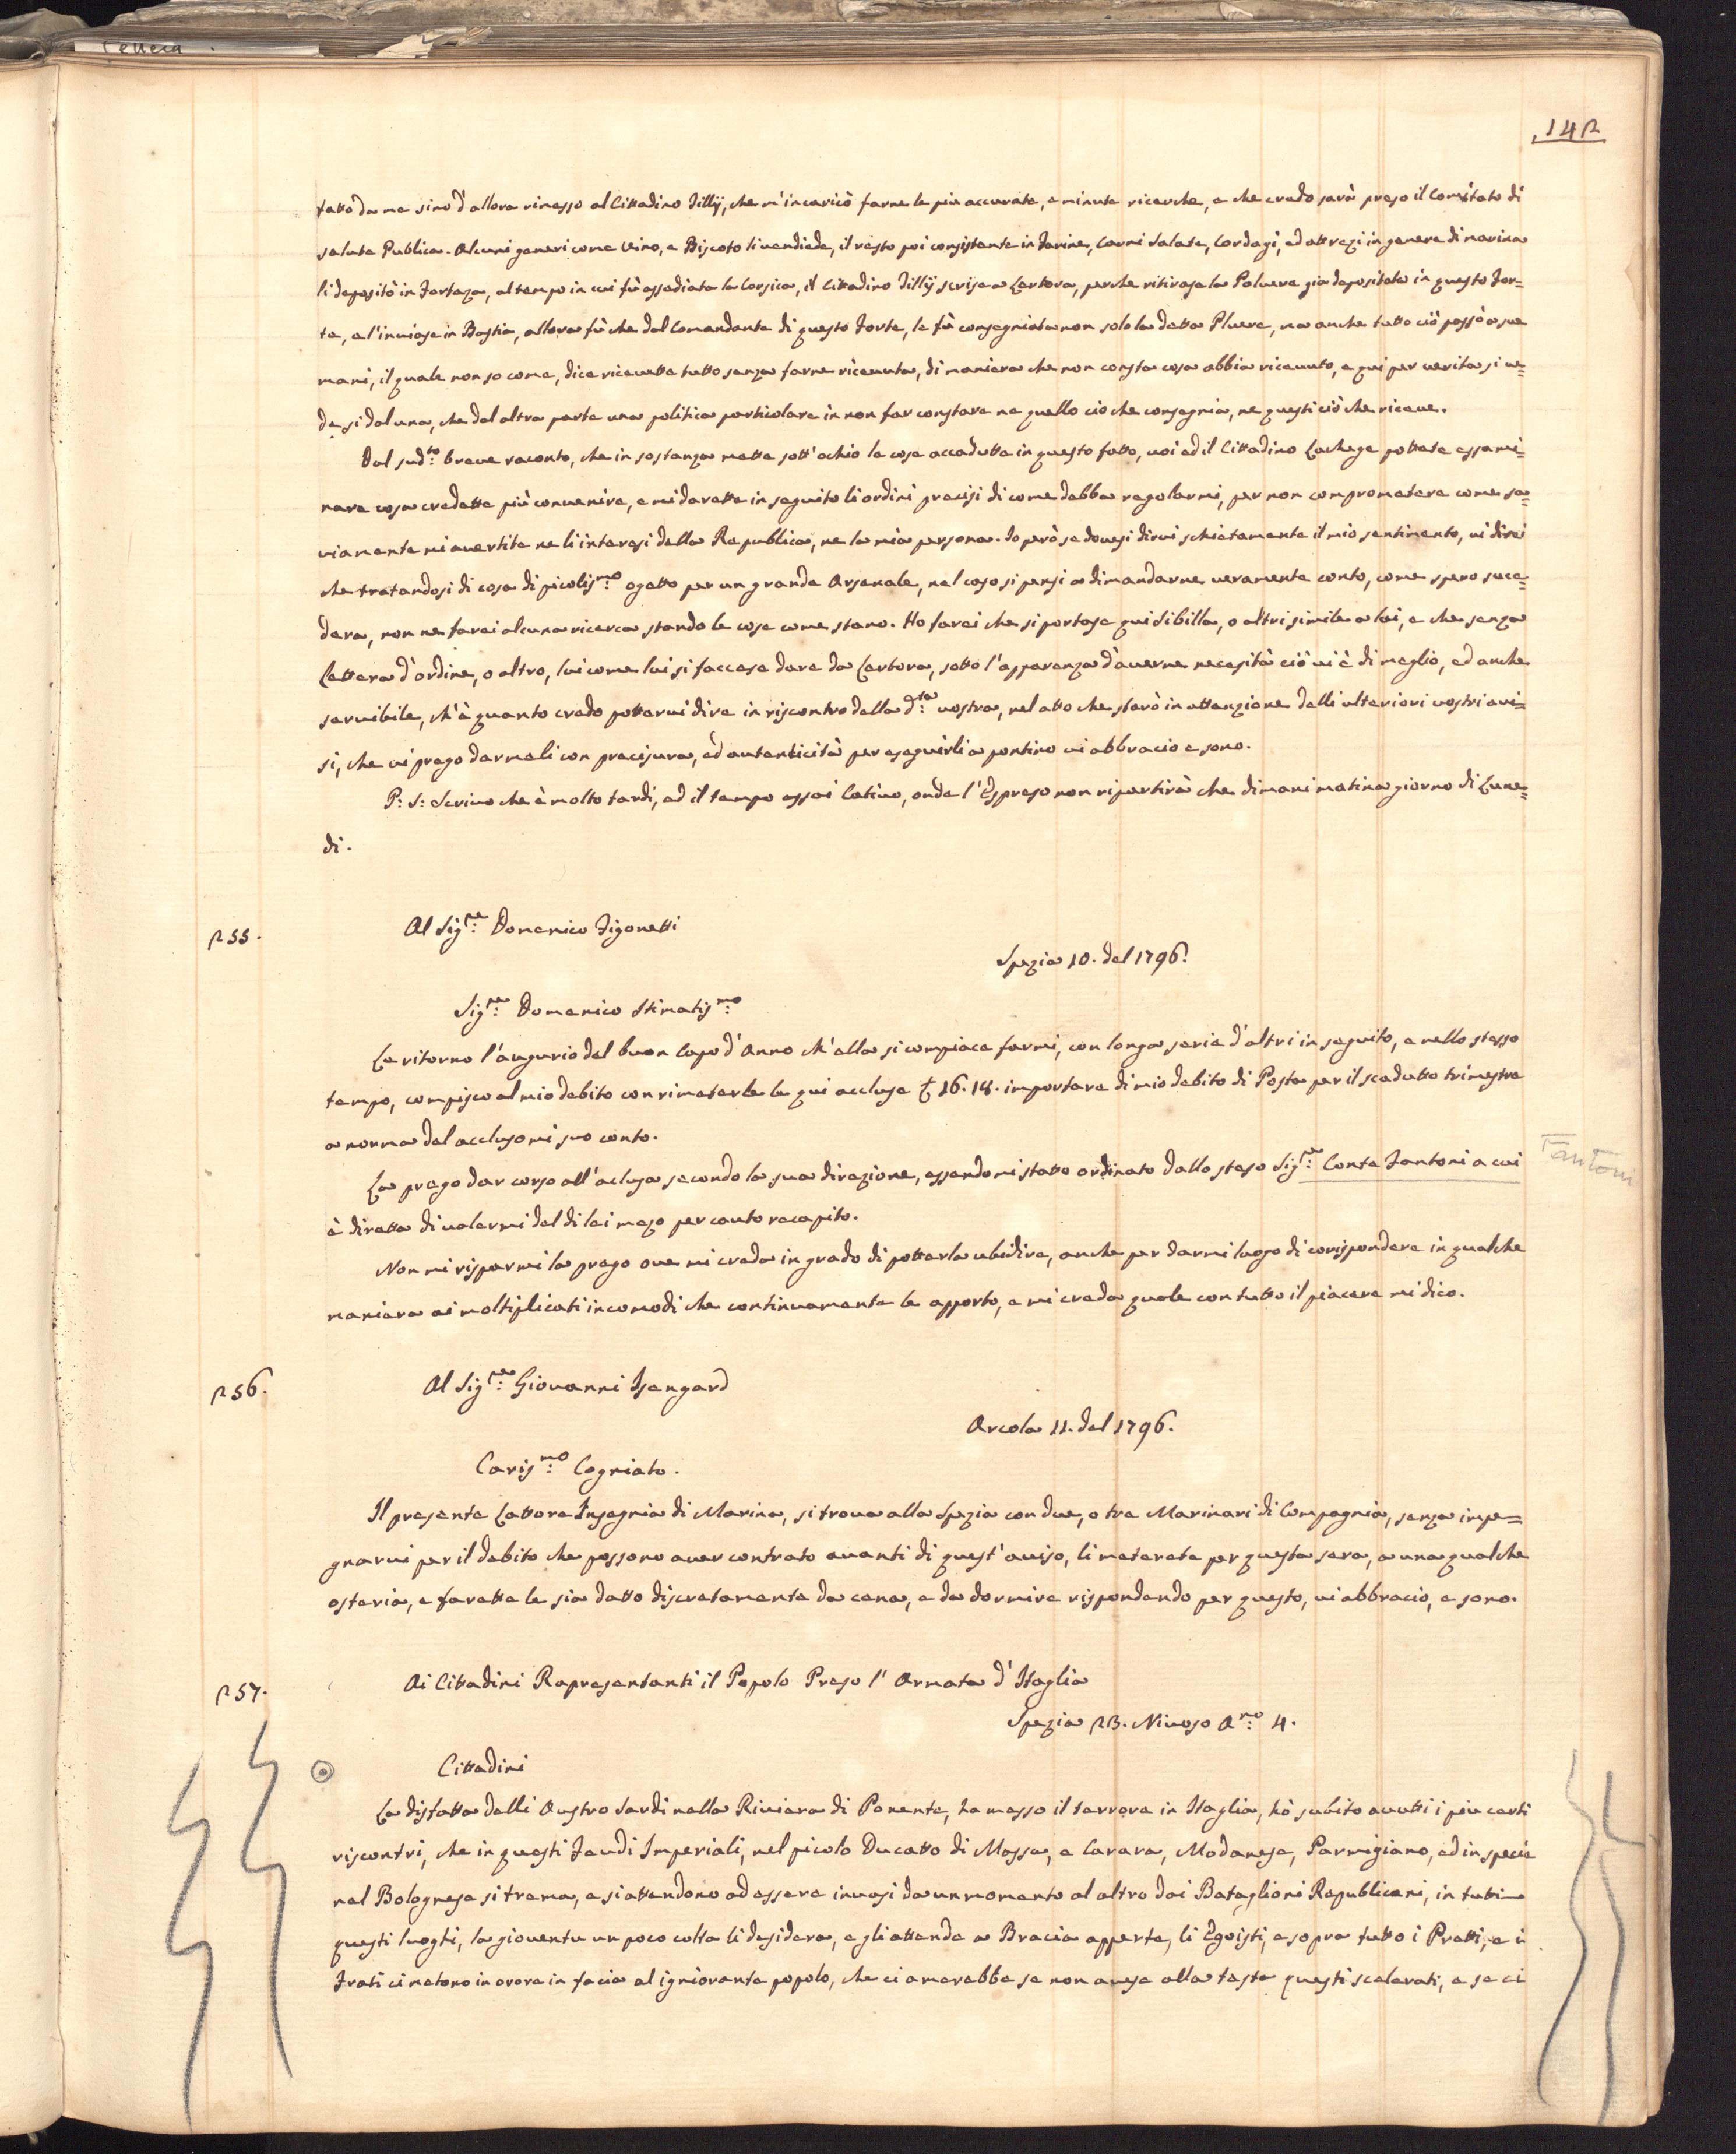 142
fatto da me sino d'allora rimesso al Cittadino Tillÿ, che m'incaricò farne le piu accurate, e minute ricerche, e che credo sarà preso il Comitato di
salute Publica. Alcuni generi come Vino, e Biscoto li vendiede, il resto poi consistente in Farine, Carni Salate, Cordagi, ed attrezi in genere di marina
li depositò in Forteza, al tempo in cui fù assediata la Corsica, il Cittadino Tillÿ scrise a Cartora, perche ritirase la Polvere gia depositata in questo For=
te, e l'inviase in Bastia, allora fù che dal Comandante di questo Forte, le fù consegniata non solo la detta Plvere, ma anche tutto ciò passò a sue
mani, il quale non so come, dice ricevette tutto senza farne ricevuta, di maniera che non consta cosa abbia ricevuto, e qui per verita si ve=
de si dal una, che dal altra parte una politica particolare in non far constare ne quello ciò che consegnia, ne questi ciò che riceve.
Dal sud:to breve raconto, che in sostanza mette sott'ochio le cose accadutte in questo fatto, voi ed il Cittadino Lachege pottete essami=
nare cosa credette più convenire, e mi darette in seguito li ordini precisi di come debba regolarmi, per non comprometere come sa=
viamente mi avertite ne li interesi della Republica, ne la mia persona. Io però se dovesi dirvi schietamente il mio sentimento, vi direi
che tratandosi di cosa di picolis:mo ogetto per un grande Arsenale, nel caso si pensi a dimandarne veramente conto, come spero suce=
dera, non ne farei alcuna ricerca stando le cose come stano. Ho farei che si portase qui Sibilla, o altri simile a lei, e che senza
Lettera d'ordine, o altro, lui come lui si faccese dare da Cartora, sotto l'apparenza d'averne necesità ciò vi è di meglio, ed anche
servibile, ch'è quanto credo pottervi dire in riscontro della d:ta vostra, nel atto che starò in attenzione delli ulteriori vostri avi=
si, che vi prego darmeli con precisura, ed autenticità per eseguirli a pontino vi abbracio e sono.
P: S: Scrivo che è molto tardi, ed il tempo assai Cativo, onde l'Espreso non ripartirà che dimani matina giorno di Lune=
di.
255.
Al Sig:re Domenico Figonetti
Spezia 10. del 1796.
Sig:re Domenico Stimatis:mo
Le ritorno l'augurio del buon Capo d'Anno ch'ella si compiace farmi, con longa serie d'altri in seguito, e nello stesso
tempo, compisco al mio debito con rimeterle le qui accluse £ 16. 18. importare di mio debito di Posta per il scadutto trimestre
a norma del acclusomi suo conto.
La prego dar corso all'aclusa secondo la sua direzione, essendomi statto ordinato dallo steso Sig:re Conte Fantoni a cui
Fantoni
è diretta di valermi del di lei mezo per cauto recapito.
Non mi risparmi la prego ove mi creda in grado di potterla ubidire, anche per darmi luogo di corispondere in qualche
maniera ai moltiplicati incomodi che continuamente le apporto, e mi creda quale con tutto il piacere mi dico.
256.
Al Sig:re Giovanni Isengard
Arcola 11. del 1796.
Caris:mo Cogniato.
Il presente Lattore Insegnia di Marina, si trova alla Spezia con due, o tre Marinari di Compagnia, senza impe=
gnarvi per il debito che possono aver contrato avanti di quest'aviso, li meterete per questa sera, a una qualche
osteria, e farette le sia datto discretamente da cena, e da dormire rispondendo per questo, vi abbracio, e sono.
257.
Ai Cittadini Rapresentanti il Popolo Preso l'Armata d'Itaglia
Spezia 23. Nivoso A:no 4.
Cittadini
La disfatta delli Austro Sardi nella Riviera di Ponente, ha messo il terrore in Itaglia, hò subito avutti i piu certi
riscontri, che in questi Feudi Imperiali, nel picolo Ducatto di Massa, e Carara, Modanese, Parmigiano, ed in specie
nel Bolognese si trema, e si attendono ad essere invasi da un momento al altro dai Bataglioni Republicani, in tutti
questi luoghi, la gioventu un poco colta li desidera, e gli attende a Bracia apperte, li Egoisti, e sopra tutto i Pretti, e i
Frati ci metono in orore in facia al igniorante popolo, che ci amerebbe se non avese alla testa questi scelerati, e se ci